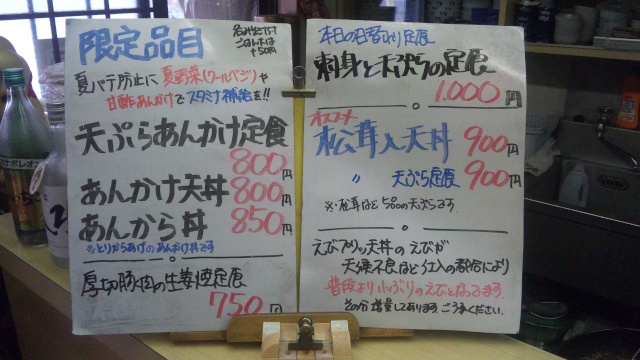 限定品目
ごはん大は
+50円
夏バテ防止に夏野菜(クールベジ)や
甘酢あんかけでスタミナ補給を!!
天ぷらあんかけ定食
800円
あんかけ天丼 800円
あんから丼 850円
※とりからあげのあんかけ丼です
厚切豚肉の生姜焼定食
750円
本日の日替り定食
刺身と天ぷらの定食
1.000円
オススメ
松茸入天丼 900円
〃 天ぷら定食 900円
※松茸ほど5品の天ぷらです
えびプリッ天丼のえびが
天候不良など仕入の都合により
普段より小ぶりのえびとなってます。
その分増量してあります。ご了承ください。